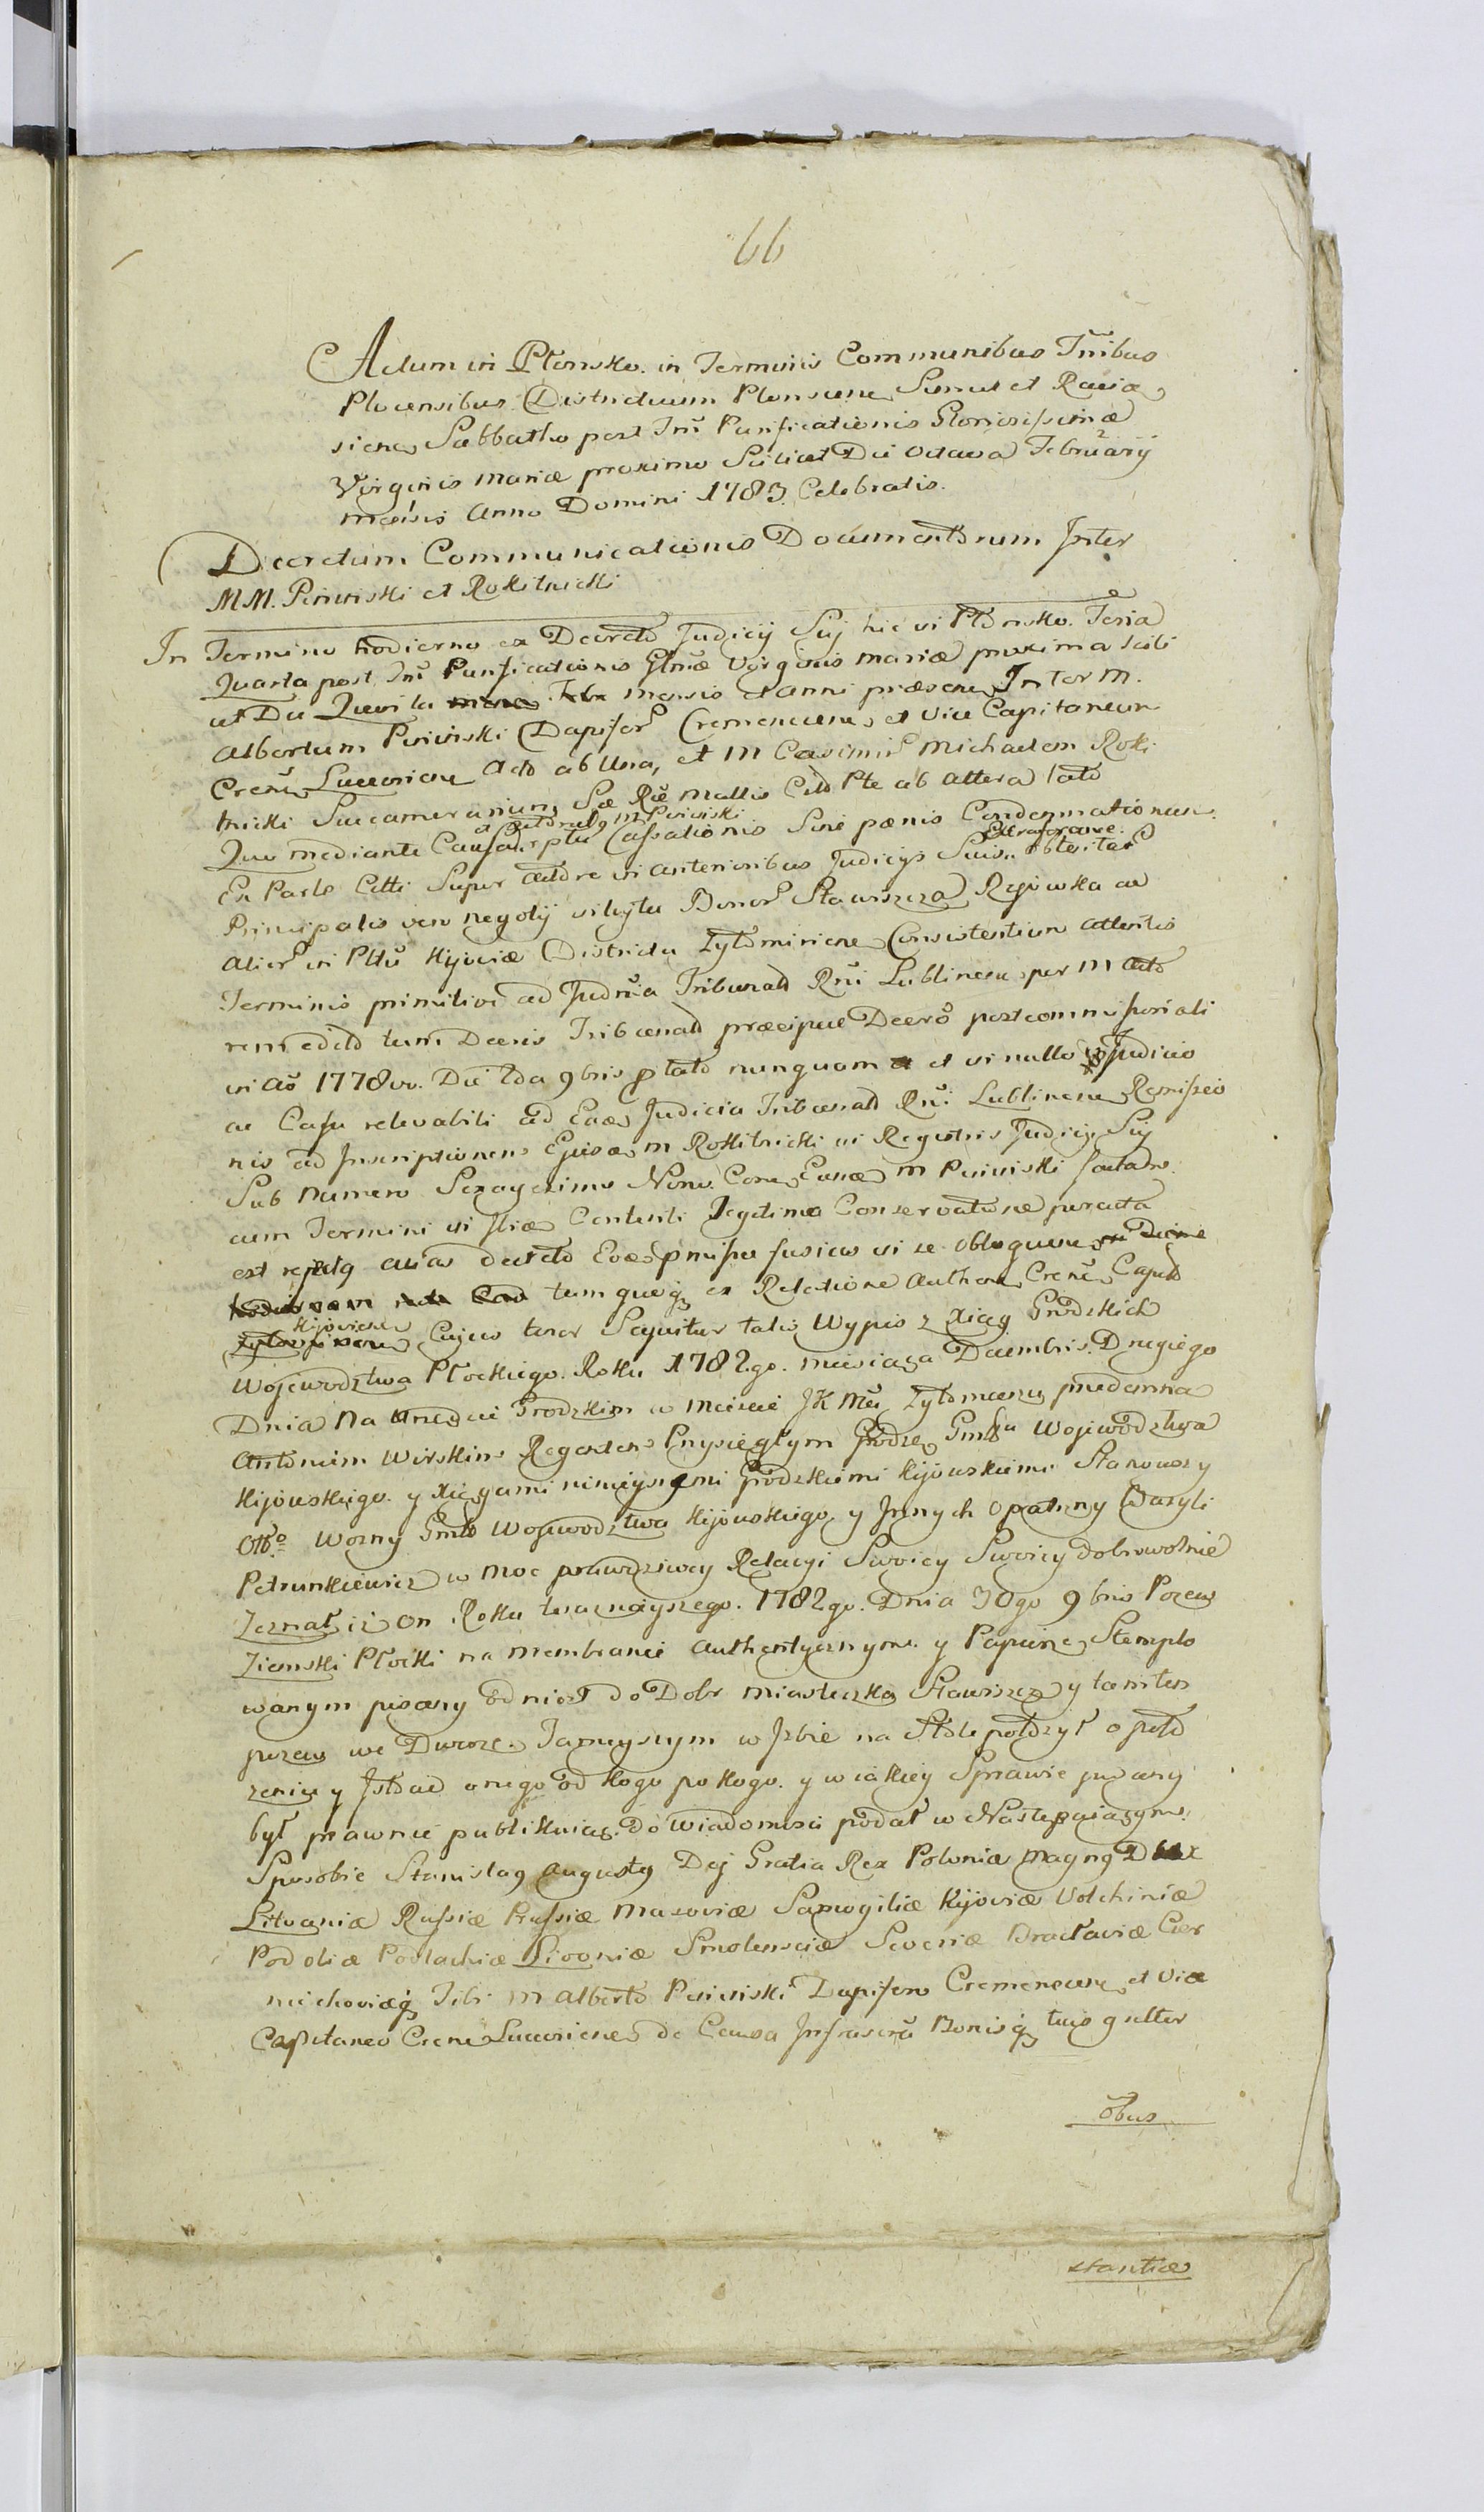 66
Actum in Płonsko. in Terminis Communibus Tribus
Plocensibus Districtuum Plonscen Simul et Racią
siens Sabbatho post Im̃ Purificationis Gloriosissimæ
Virginis mariæ proximo Scilicet Die Octava Februarij
mensis Anno Domini 1783. Celebratis.
Decretum Communicationis Documentorum Inter
MM. Piwiński et Rokitnicki
In Termino hodierno ex Decreto Judicij Suj hic in Płonsko. Feria
Quarta post Im̃ Purificationis Glr̃æ Virginis mariæ proxima scili
cet Die Quinta mensis et anni præsen Inter M.
Albertum Piwiński Dapifer Cremenecen et Vice Capitaneum
Cren̄ Luceorien Acto ab Una, et M Casimir Michaelem Roki
tnicki Succamerarium Sæ Ræ Mattis Citto Pte ab altera
Quo mediante Causa Cassationis Sine pœnis Condemnationum
M Piwiński
Ex Parte Citti Super in anterioribus Judicijs Suis obtentar
Principalis vero negotij Bonor Stawiszcza Rejowka ac
alior in Pltũ Kijoviæ Districtu Zytomirien Consistentium attentis
Terminis primitive ad Judr̃ia Tribunal Rñi Lublinen per M Acto
tum Decris Tribunal præcipue Decro postcommissoriali
in Aõ 1778vo. Die 2da 9bris plato nunquam et in nullo Judicio
ac Casu relevabili ad Eaes Judicia Tribunal Rñi Lublinen Remissio
nis ad Inscriptionem Ejusdem M Rokitnicki in Registris Judicij Suj
Sub Numero Sexagesimo Nono. M Piwiński
cum Termini in Contenti Legitima Conservatione peracta
est Decreto fusius in se obloquen
tum quoq ex Relatione Authen Cren̄ Capit
Kijovien Cujus tenor Sequitur talis Wypis z Xiąg Grodzkich
Wojewodztwa Płockiego. Roku 1782go. miesiąca Decembris. Drugiego
Dnia Na Urzędzie Grodzkim w mieście JK Mci Zytomierzu przedemna
Antonim Wirskim Regentem Przysięgłym Grodz Gnłu Wojewodztwa
Kijowskiego. y Xięgami nineyszemi Grodzkiemi Kijowskiemi Stanowszy
Oblo Wozny Gnło Wojewodztwa Kijowskiego y Innych Opatrzny Bazyli
Petrunkiewicz w Moc prawdziwey Relacyi Swoiey Swoicy dobrowolnie
Zeznał iż on Roku teraznieyszego. 1782go. Dnia 30go 9bris Pozew
Ziemski Płocki na Membranie Authentycznym. y Papierze Stemplo
wanym pisany odniosł do Dobr miasteczka Stawiszcz y tamten
pozew we Dworze. Tameyszym w Izbie na Stole położył o poło
zeniu y Istocie onego od kogo po kogo. y w iakiey Sprawie pisany
był prawnie publikuiąc. do Wiadomości podał w Następuiącym.
Sposobie Stanislaq Augustq Dej Gratia Rex Poloniæ Magnq Dux
Lituaniæ Russiæ Prussiæ Masoviæ Samogitiæ Kijoviæ Volchiniæ
Podoliæ Podlachiæ Livoniæ Smolensciæ Severiæ Braclaviæ Czer
niechoviæq Tibi M Alberto Piwiński Dapifero Cremenecen et Vice
Capitaneo Cren Luceorien de Causa Infrascra Bonisq tuis gnlter
õbus
stantiæ